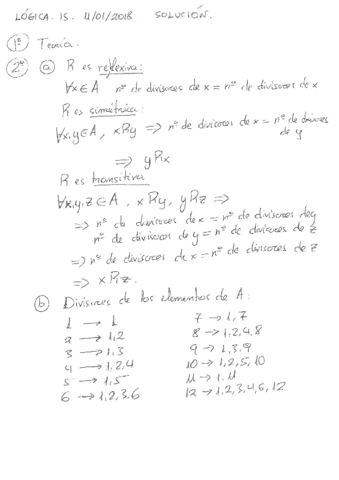 LÓGICA. IS. 11/01/2018 SOLUCIÓN.
1º Teoría.
2º a) R es reflexiva:
∀x∈A nº de divisores de x = nº de divisores de x
R es simétrica:
∀x,y∈A, xRy ⟹ nº de divisores de x = nº de divisores
de y
⟹ yRx
R es transitiva
∀x,y,z∈A, xRy, yRz ⟹
⟹ nº de divisores de x = nº de divisores de y
nº de divisores de y = nº de divisores de z
⟹ nº de divisores de x = nº de divisores de z
⟹ xRz.
b) Divisores de los elementos de A:
1 → 1
2 → 1,2
3 → 1,3
4 → 1,2,4
5 → 1,5
6 → 1,2,3,6
7 → 1,7
8 → 1,2,4,8
9 → 1,3,9
10 → 1,2,5,10
11 → 1,11
12 → 1,2,3,4,6,12